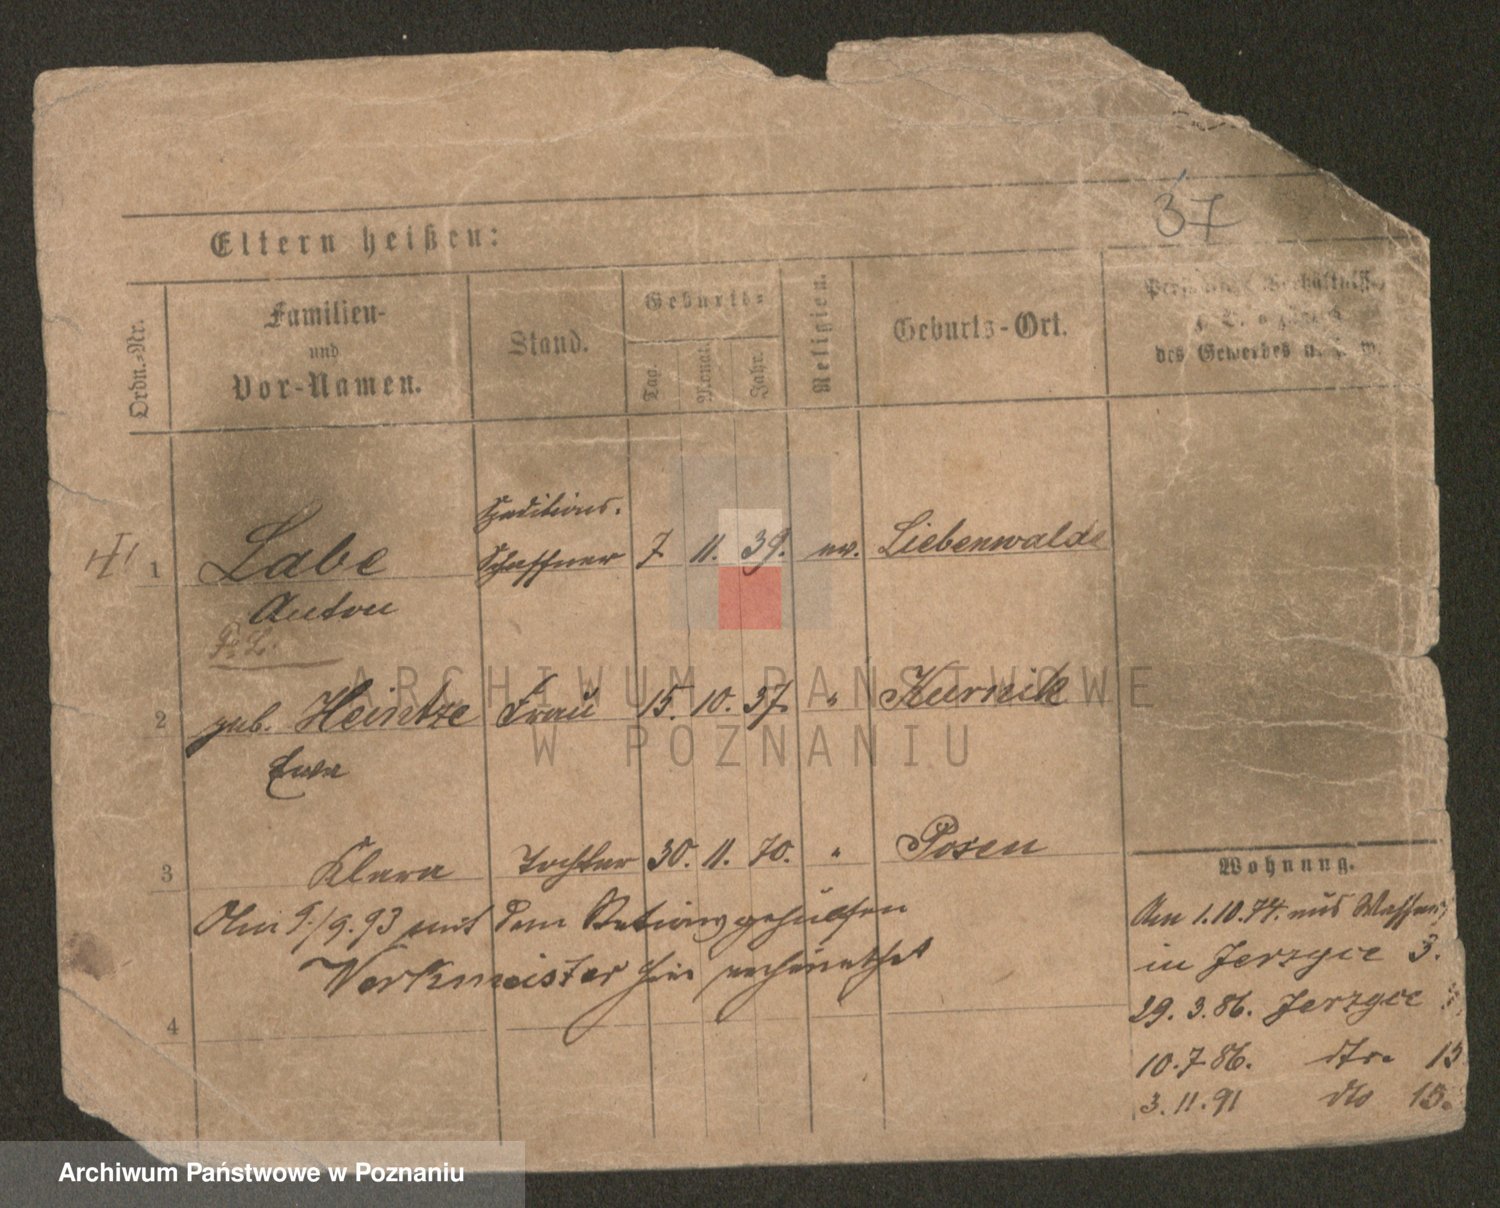 37
Eltern heißen:
Ordn.-Nr.
Familien-
und
Vor-Namen.
Stand.
Geburts-
Tag.
Monat.
Jahr.
Religion.
Geburts-Ort.
des Gewerbes u. s. w.
1 Labe Speditions- Schaffner 7 11. 39. ev. Liebenwalde
Anton
2 geb. Heintze Frau 15. 10. 37. " Kurnik
Ewa
3 Klara Tochter 30. 11. 70. " Posen
Am 9./9.93 mit dem Stationsgehülfen
Werkmeister hier verheirathet
4
Wohnung.
Am 1.10.74. aus
in Jerzyce 3.
29. 3. 86. Jerzyce
10. 7 86. dto. 15
3. 11. 91 dto 15.
ARCHIWUM PAŃSTWOWE
W POZNANIU
Archiwum Państwowe w Poznaniu